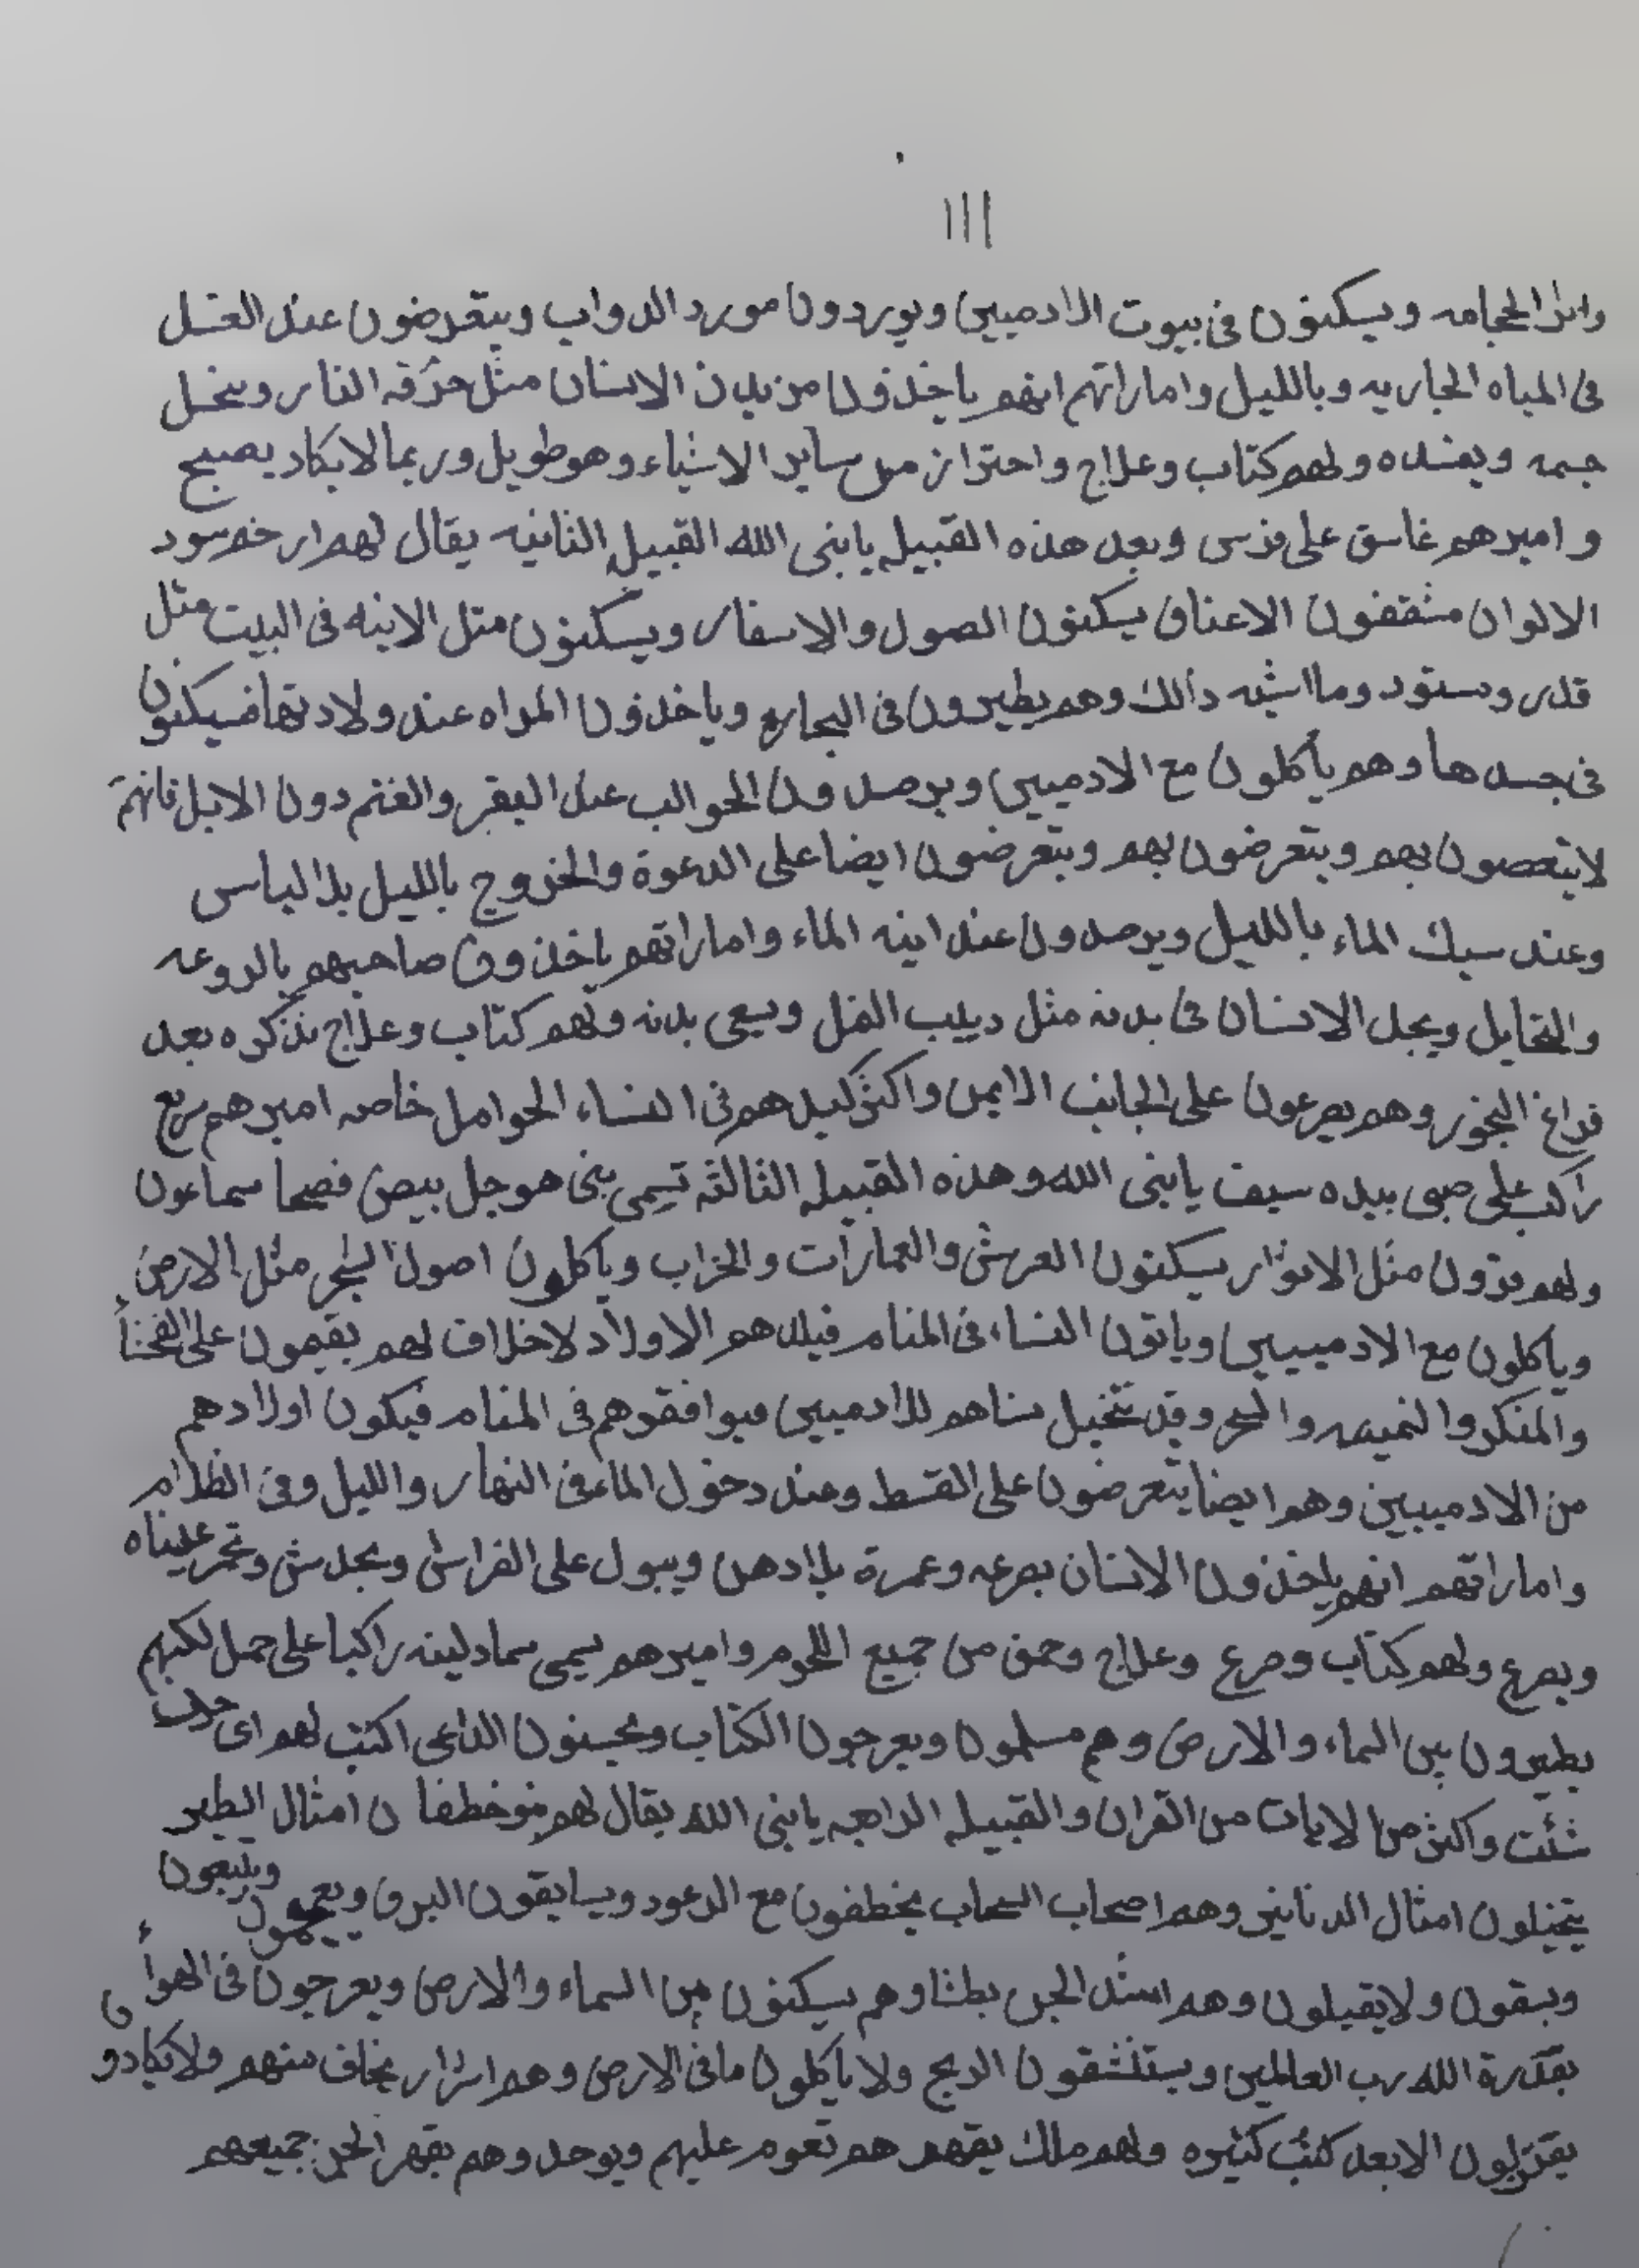 ١١١
الحجامه ويسكنون فى بيوت الادميين ويوردون مورد الدواب ويتعرضون عند الغسل
فى المياه الجاريه وبالليل واماراتهم انهم ياخذون من بدن الانسان مثل حرقه النار وينحل
جسمه ويفسده ولهم كتاب وعلاج واحتراز من ساير الاشياء وهو طويل وربما لا يكاد يصيح
واميرهم غاسق على فرس وبعد هذه القبيله يا نبى الله القبيله الثانيه يقال لهم سود
الالوان مثقفون الاعناق يسكنون الصول والاسفار ويسكنون مثل الانيه فى البيت مثل
قدر ومستود وما اشبه دالك وهم يطيرون فى المجارى وياخذون المراه عند ولادتها فيسكنون
فى جسدها وهم يأكلون مع الادميين ويرصدون الحوالب عند البقر والغنم دون الابل فانهم
لا يتعصون بهم ويتعرضون بهم ويتعرضون ايضا على الدعوة والخروج بالليل بلا لباس
وعند سبك الماء بالليل ويرصدون عند انيه الماء واماراتهم ياخذون صاحبهم بالروعه
والتخايل ويجد الانسان فى بدنه مثل دبيب النمل ويسعى بدنه ولهم كتاب وعلاج نذكره بعد
فراغ البخور وهم يصرعون على الجانب الايمن واكثر كيدهم فى النساء الحوامل خاصه اميرهم
راكب على صبى بيده سيف يا نبى الله وهذه القبيله الثالثه تسمى بنى هوجل بيض فصحا سماعون
ولهم قرون مثل الاثوار يسكنون العرش والعمارات والخراب وياكلون اصول الشجر مثل الارض
وياكلون مع الادميين وياتون النساء فى المنام فيلدهم الاولاد لاخلاف لهم يقيمون على الفحشاً
والمنكر والنميمه والسحر وقد تتخيل نساهم للادميين فيوافقوهم فى المنام فيكون اولادهم
من الادميين وهم ايضا يتعرضون على القسط وعند دخول الماء فى النهار والليل وفى الظلام
واماراتهم انهم ياخذون الانسان بصرعه وغمرة بلا دهن ويبول على الفراش ويجد ش وتحمر عيناه
ويصرع ولهم كتاب وصرع وعلاج وحمى من جميع اللحوم واميرهم يسمى سمادلينه راكبا على جمل لكنهم
يطيرون بين السماء والارض وهم مسلمون ويعرجون الكتاب ويحبون الداعى اكتب لهم اى
شئت واكثر من الايات من القران والقبيله الرابعه يا نبى الله يقال لهم بنو خطفان امثال الطير
يتخيلون امثال الدنانير وهم اصحاب السحاب يخطفون مع الرعود ويسابقون البرق ويتبعون
ويسقون ولا يقيلون وهم اشد الجن بطشا وهم يسكنون بين السماء والارض ويعرجون فى الهواء
بقدرة الله رب العالمين ويستنشقون الريح ولا ياكلون ما فى الارض وهم اشرار يخاف منهم ولا يكادو
يقتربون الا بعد كتب كثيره ولهم ملك يقهرهم تعوم عليهم ويوحد وهم يقهر الجن جميعهم